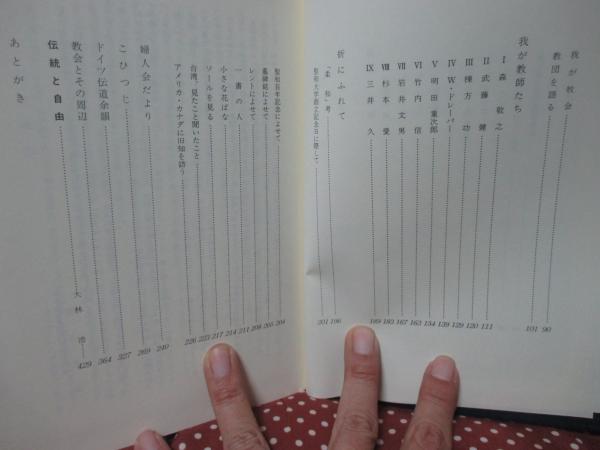 我が教会
教団を語る 90
我が教師たち 101
Ⅰ 森 敬之 111
Ⅱ 武藤 健 120
Ⅲ 棟方 功 129
Ⅳ W・ドレーパー 139
Ⅴ 明田 重次郎 154
Ⅵ 竹内 信 163
Ⅶ 岩井 文男 167
Ⅷ 杉本 愛 183
Ⅸ 三井 久 189
折にふれて
「柔和」考 196
聖和大学創立記念日に際して 201
聖和百年記念によせて 204
墓碑銘によせて 205
レントによせて 208
一書の人 211
小さな花ばな 214
ソールを見る 217
台湾、見たこと聞いたこと 223
アメリカ・カナダに旧知を訪う 226
婦人会だより 240
こひつじ 269
ドイツ伝道余韻 327
教会とその周辺 364
伝統と自由 大林 浩 429
あとがき